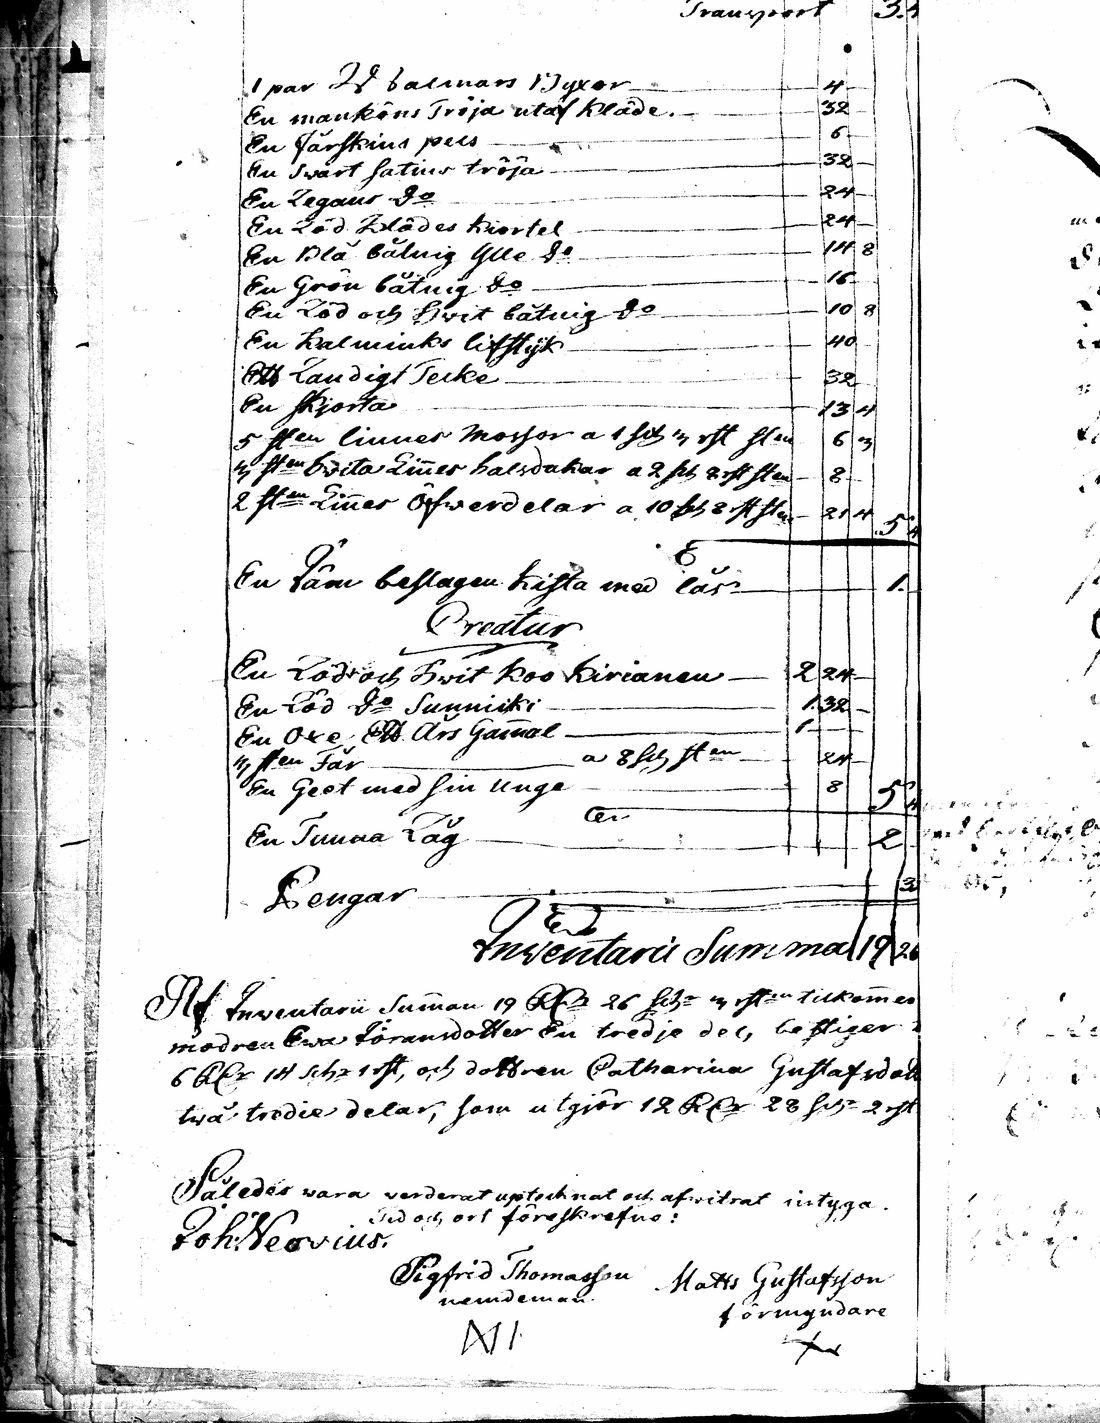 Transport 3.
1 par Walmars Byxor 4
En manköns Tröja utaf kläde. 32
En fårskins pels 6
En Swart Satins tröja 32
En Zegans do 24
En Röd Klädes kiortel 24
En Blå båtnig Ylle do 14 8
En Grön båtnig do 16
En Röd och Hwit båtnig do 10 8
En kalminks lifstyk 40
Ett Randigt Tecke 32
En Skjorta 13 4
5 sten linnes Mössor a 1 sch 3 rst sten 6 3
3 sten hwita Linnes halsdukar a 2 sch 8 rst sten 8
2 sten Linnes Öfwerdelar a 10 sch 8 rst sten 21 4 5
En Järn beslagen kista med lås 1.
Creatur
En Röd och Hwit Koo Kirianen 2 24
En Röd do Sunnicki 1 32
En Oxe Ett Års Gammal 1
3 sten Får a 8 sch sten 24
En Geet med sin Unge 8 5
En Tunna Råg 2
Pengar 3
Inventarii Summa 19 26
Af Inventarii Summan 19 RDr 26 sch 3 rsten tilkommer
modren Ewa Jöransdotter En tredje del, bestiger
6 RDr 14 sch 1 rst, och dottren Catharina Gustafsdott
twå tredie delar, som utgjör 12 RDr 28 sch 2 rst
Således wara verderat uptecknat och afwitrat intyga.
Tid och ort föreskrefne:
Joh: Neovius.
Sigfrid Thomasson Matts Gustafsson
nemdeman. förmyndare